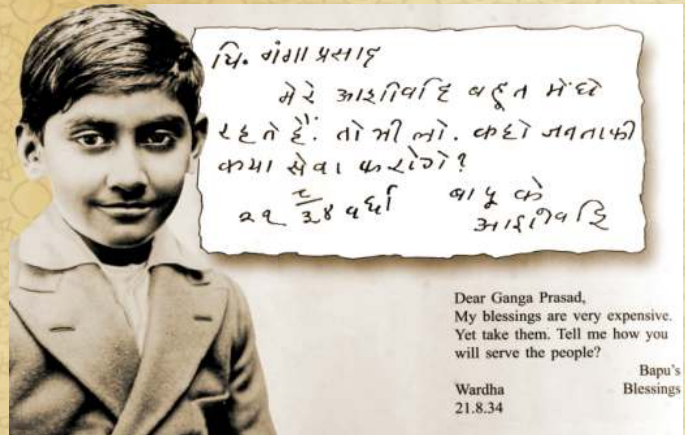 चि. गंगा प्रसाद
मेरे आशीर्वाद बहुत मेंघे
रहते हैं. तो भी लो. कहो जनताकी
क्या सेवा करोगे?
२१ ८/३४ वर्धा बापू के
आशीर्वाद
Dear Ganga Prasad,
My blessings are very expensive.
Yet take them. Tell me how you
will serve the people?
Bapu's
Wardha Blessings
21.8.34